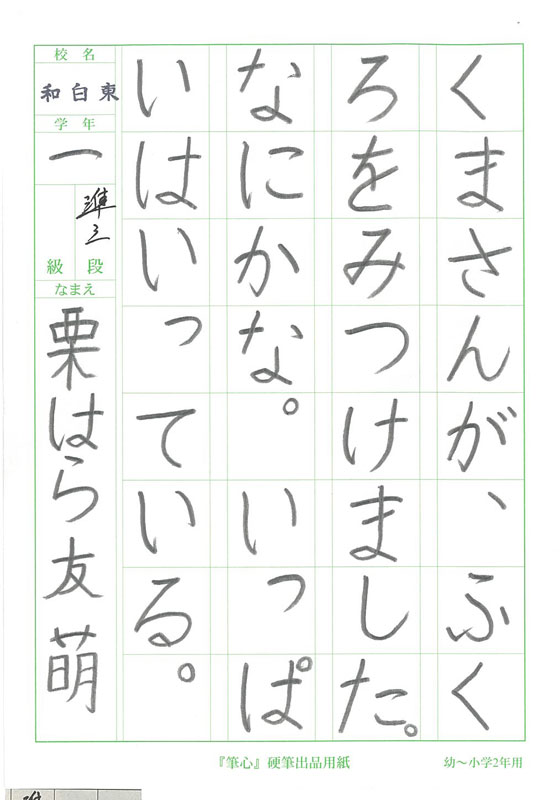 くまさんが、ふく
ろをみつけました。
なにかな。いっぱ
いはいっている。
校名
和白東
学年
一
準三
段
級
なまえ
栗はら友萌
『筆心』硬筆出品用紙
幼～小学2年用